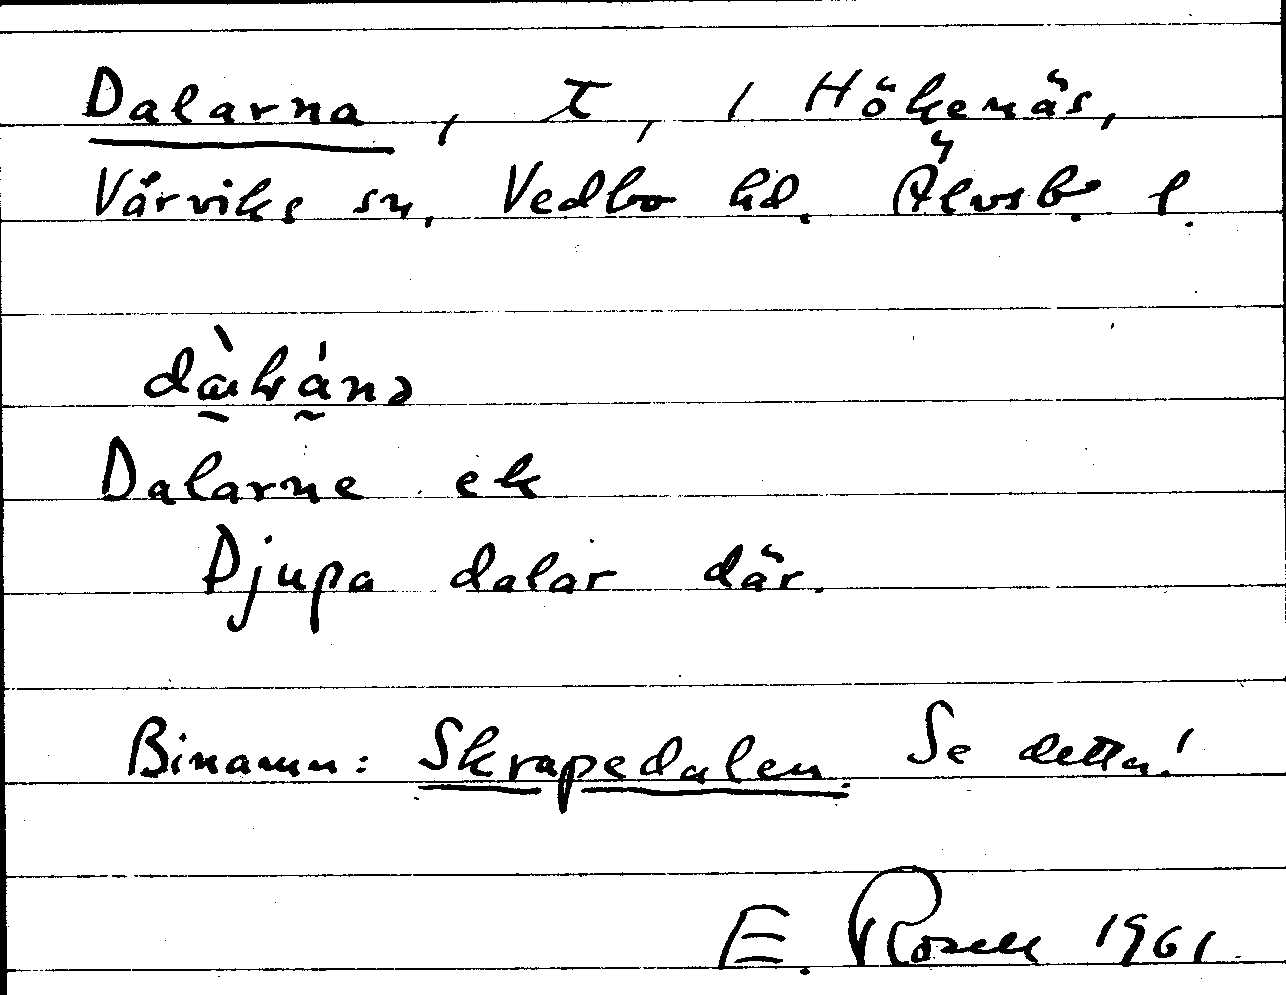 Dalarna, t, i Hökenäs,
Vårviks sn, Vedbo hd. Älvsb. l.
Dalarne ek
Djupa dalar där.
Binamn: Skrapedalen. Se detta!
E. Rosell 1961